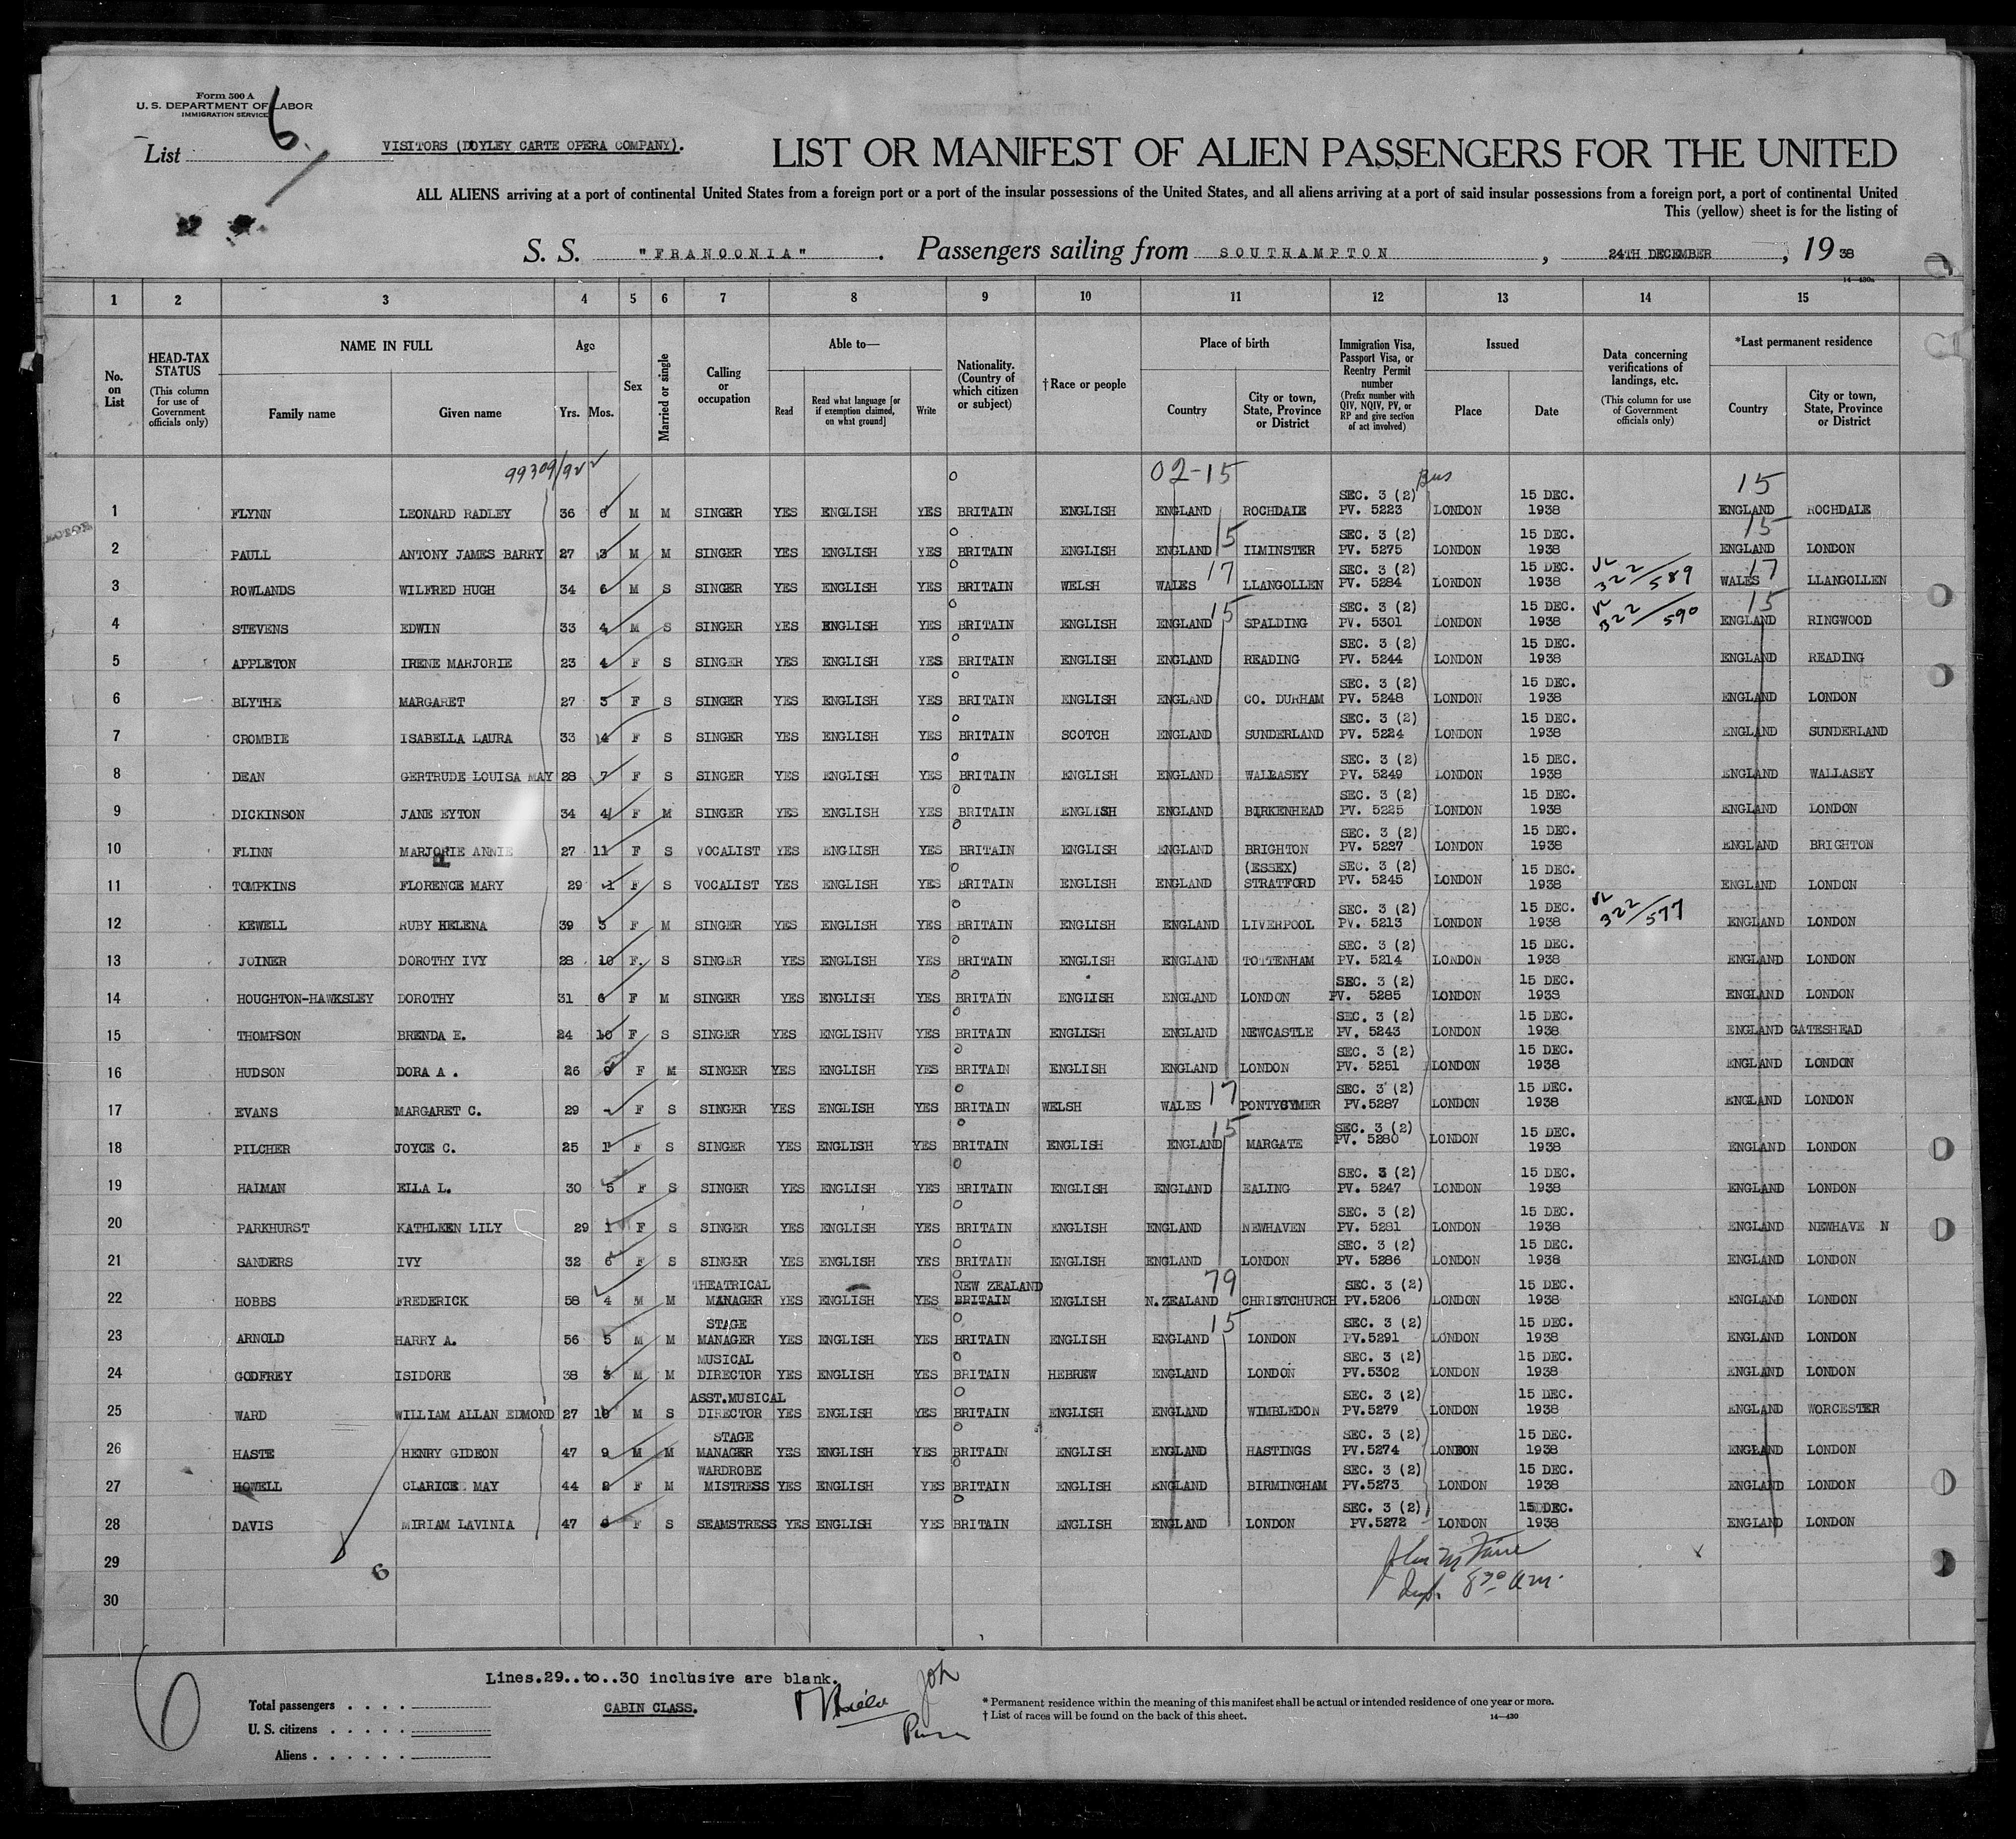 Form 500 A
U. S. DEPARTMENT OF LABOR
IMMIGRATION SERVICE
6
List
VISITORS (DOYLEY CARTE OPERA COMPANY).
LIST OR MANIFEST OF ALIEN PASSENGERS FOR THE UNITED
ALL ALIENS arriving at a port of continental United States from a foreign port or a port of the insular possessions of the United States, and all aliens arriving at a port of said insular possessions from a foreign port, a port of continental United
This (yellow) sheet is for the listing of
S. S. "FRANCONIA". Passengers sailing from SOUTHAMPTON, 24TH DECEMBER, 1938
14—430a
1 2 3 4 5 6 7 8 9 10 11 12 13 14 15
No. on List
HEAD-TAX STATUS (This column for use of Government officials only)
NAME IN FULL Family name Given name
Age Yrs. Mos.
Sex
Married or single
Calling or occupation
Able to— Read Read what language [or if exemption claimed, on what ground] Write
Nationality. (Country of which citizen or subject)
† Race or people
Place of birth Country City or town, State, Province or District
Immigration Visa, Passport Visa, or Reentry Permit number (Prefix number with QIV, NQIV, PV, or RP and give section of act involved)
Issued Place Date
Data concerning verifications of landings, etc. (This column for use of Government officials only)
*Last permanent residence Country City or town, State, Province or District
99309/92 02-15 Bus 15
1 FLYNN LEONARD RADLEY 36 6 M M SINGER YES ENGLISH YES BRITAIN ENGLISH ENGLAND ROCHDALE SEC. 3 (2) PV. 5223 LONDON 15 DEC. 1938 ENGLAND ROCHDALE
2 PAULL ANTONY JAMES BARRY 27 3 M M SINGER YES ENGLISH YES BRITAIN ENGLISH ENGLAND 15 ILMINSTER SEC. 3 (2) PV. 5275 LONDON 15 DEC. 1938 15 ENGLAND LONDON
3 ROWLANDS WILFRED HUGH 34 6 M S SINGER YES ENGLISH YES BRITAIN WELSH WALES 17 LLANGOLLEN SEC. 3 (2) PV. 5284 LONDON 15 DEC. 1938 VL 322/589 WALES 17 LLANGOLLEN
4 STEVENS EDWIN 33 4 M S SINGER YES ENGLISH YES BRITAIN ENGLISH ENGLAND 15 SPALDING SEC. 3 (2) PV. 5301 LONDON 15 DEC. 1938 VL 322/590 15 ENGLAND RINGWOOD
5 APPLETON IRENE MARJORIE 23 4 F S SINGER YES ENGLISH YES BRITAIN ENGLISH ENGLAND READING SEC. 3 (2) PV. 5244 LONDON 15 DEC. 1938 ENGLAND READING
6 BLYTHE MARGARET 27 3 F S SINGER YES ENGLISH YES BRITAIN ENGLISH ENGLAND CO. DURHAM SEC. 3 (2) PV. 5248 LONDON 15 DEC. 1938 ENGLAND LONDON
7 CROMBIE ISABELLA LAURA 33 4 F S SINGER YES ENGLISH YES BRITAIN SCOTCH ENGLAND SUNDERLAND SEC. 3 (2) PV. 5224 LONDON 15 DEC. 1938 ENGLAND SUNDERLAND
8 DEAN GERTRUDE LOUISA MAY 28 7 F S SINGER YES ENGLISH YES BRITAIN ENGLISH ENGLAND WALLASEY SEC. 3 (2) PV. 5249 LONDON 15 DEC. 1938 ENGLAND WALLASEY
9 DICKINSON JANE EYTON 34 4 F M SINGER YES ENGLISH YES BRITAIN ENGLISH ENGLAND BIRKENHEAD SEC. 3 (2) PV. 5225 LONDON 15 DEC. 1938 ENGLAND LONDON
10 FLINN MARJORIE ANNIE 27 11 F S VOCALIST YES ENGLISH YES BRITAIN ENGLISH ENGLAND BRIGHTON SEC. 3 (2) PV. 5227 LONDON 15 DEC. 1938 ENGLAND BRIGHTON
11 TOMPKINS FLORENCE MARY 29 1 F S VOCALIST YES ENGLISH YES BRITAIN ENGLISH ENGLAND (ESSEX) STRATFORD SEC. 3 (2) PV. 5245 LONDON 15 DEC. 1938 ENGLAND LONDON
12 KEWELL RUBY HELENA 39 3 F M SINGER YES ENGLISH YES BRITAIN ENGLISH ENGLAND LIVERPOOL SEC. 3 (2) PV. 5213 LONDON 15 DEC. 1938 VL 322/577 ENGLAND LONDON
13 JOINER DOROTHY IVY 28 10 F. S SINGER YES ENGLISH YES BRITAIN ENGLISH ENGLAND TOTTENHAM SEC. 3 (2) PV. 5214 LONDON 15 DEC. 1938 ENGLAND LONDON
14 HOUGHTON-HAWKSLEY DOROTHY 31 6 F M SINGER YES ENGLISH YES BRITAIN ENGLISH ENGLAND LONDON SEC. 3 (2) PV. 5285 LONDON 15 DEC. 1938 ENGLAND LONDON
15 THOMPSON BRENDA E. 24 10 F S SINGER YES ENGLISHV YES BRITAIN ENGLISH ENGLAND NEWCASTLE SEC. 3 (2) PV. 5243 LONDON 15 DEC. 1938 ENGLAND GATESHEAD
16 HUDSON DORA A . 26 9 F M SINGER YES ENGLISH YES BRITAIN ENGLISH ENGLAND LONDON SEC. 3 (2) PV. 5251 LONDON 15 DEC. 1938 ENGLAND LONDON
17 EVANS MARGARET C. 29 - F S SINGER YES ENGLISH YES BRITAIN WELSH WALES 17 PONTYCYMER SEC. 3 (2) PV.5287 LONDON 15 DEC. 1938 ENGLAND LONDON
18 PILCHER JOYCE C. 25 1 F S SINGER YES ENGLISH YES BRITAIN ENGLISH ENGLAND 15 MARGATE SEC. 3 (2) PV. 5280 LONDON 15 DEC. 1938 ENGLAND LONDON
19 HALMAN ELLA L. 30 5 F S SINGER YES ENGLISH YES BRITAIN ENGLISH ENGLAND EALING SEC. 3 (2) PV. 5247 LONDON 15 DEC. 1938 ENGLAND LONDON
20 PARKHURST KATHLEEN LILY 29 1 F S SINGER YES ENGLISH YES BRITAIN ENGLISH ENGLAND NEWHAVEN SEC. 3 (2) PV. 5281 LONDON 15 DEC. 1938 ENGLAND NEWHAVE N
21 SANDERS IVY 32 6 F S SINGER YES ENGLISH YES BRITAIN ENGLISH ENGLAND LONDON SEC. 3 (2) PV. 5286 LONDON 15 DEC. 1938 ENGLAND LONDON
22 HOBBS FREDERICK 58 4 M M THEATRICAL MANAGER YES ENGLISH YES NEW ZEALAND BRITAIN ENGLISH N.ZEALAND 79 CHRISTCHURCH SEC. 3 (2) PV.5206 LONDON 15 DEC. 1938 ENGLAND LONDON
23 ARNOLD HARRY A. 56 5 M M STAGE MANAGER YES ENGLISH YES BRITAIN ENGLISH ENGLAND 15 LONDON SEC. 3 (2) PV.5291 LONDON 15 DEC. 1938 ENGLAND LONDON
24 GODFREY ISIDORE 38 3 M M MUSICAL DIRECTOR YES ENGLISH YES BRITAIN HEBREW ENGLAND LONDON SEC. 3 (2) PV.5302 LONDON 15 DEC. 1938 ENGLAND LONDON
25 WARD WILLIAM ALLAN EDMOND 27 10 M S ASST.MUSICAL DIRECTOR YES ENGLISH YES BRITAIN ENGLISH ENGLAND WIMBLEDON SEC. 3 (2) PV.5279 LONDON 15 DEC. 1938 ENGLAND WORCESTER
26 HASTE HENRY GIDEON 47 9 M M STAGE MANAGER YES ENGLISH YES BRITAIN ENGLISH ENGLAND HASTINGS SEC. 3 (2) PV.5274 LONDON 15 DEC. 1938 ENGLAND LONDON
27 HOWELL CLARICE MAY 44 2 F M WARDROBE MISTRESS YES ENGLISH YES BRITAIN ENGLISH ENGLAND BIRMINGHAM SEC. 3 (2) PV.5273 LONDON 15 DEC. 1938 ENGLAND LONDON
28 DAVIS MIRIAM LAVINIA 47 F S SEAMSTRESS YES ENGLISH YES BRITAIN ENGLISH ENGLAND LONDON SEC. 3 (2) PV.5272 LONDON 15 DEC. 1938 ENGLAND LONDON
29
30
6
6
Lines.29..to..30 inclusive are blank.
CABIN CLASS.
Total passengers
U. S. citizens
Aliens
* Permanent residence within the meaning of this manifest shall be actual or intended residence of one year or more.
† List of races will be found on the back of this sheet.
14—430